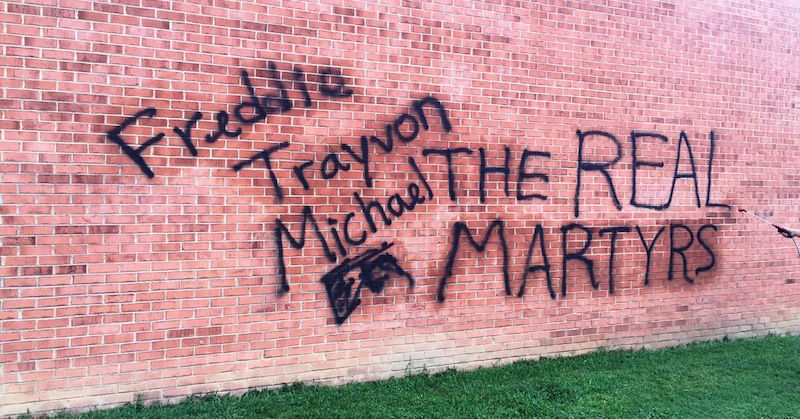 Freddie
Trayvon
Michael
THE REAL
MARTYRS